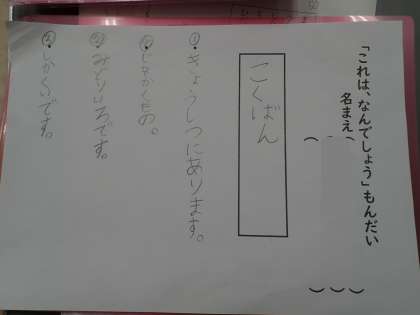 「これは、なんでしょう」もんだい
名まえ( )
( )
こくばん
① きょうしつにあります。
② じをかくもの。
③ みどりいろです。
④ しかくいです。